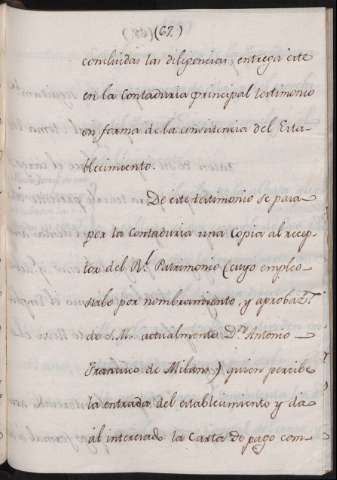 (67.)
concluidas las diligencias, entrega este
en la Contaduria principal testimonio
en forma de la consistencia del Esta-
blecimiento.
De este testimonio se pasa
por la Contaduria una Copia al recep-
tor del Rl. Patrimonio (cuyo empleo
sirve por nombramiento, y aprobaz.n
de S.M. actualmente Dn. Antonio
Francisco de Milans) quien percibe
la entrada del establecimiento y da
al interesado la Carta de pago com-